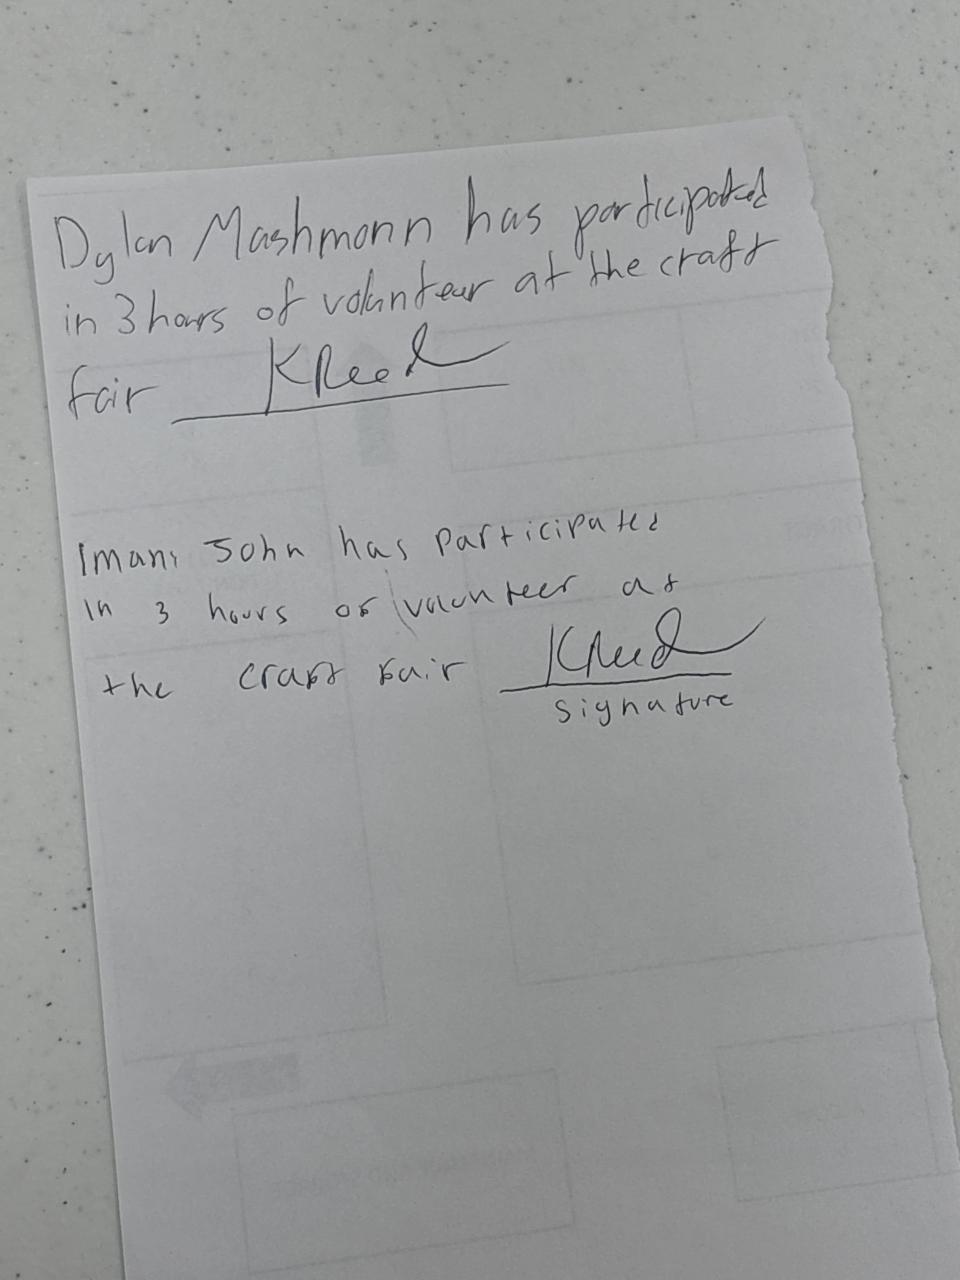 Dylan Mashmann has participated
in 3 hours of volunteer at the craft
fair KReed
Imani John has participated
in 3 hours of volunteer at
the craft fair KReed
signature